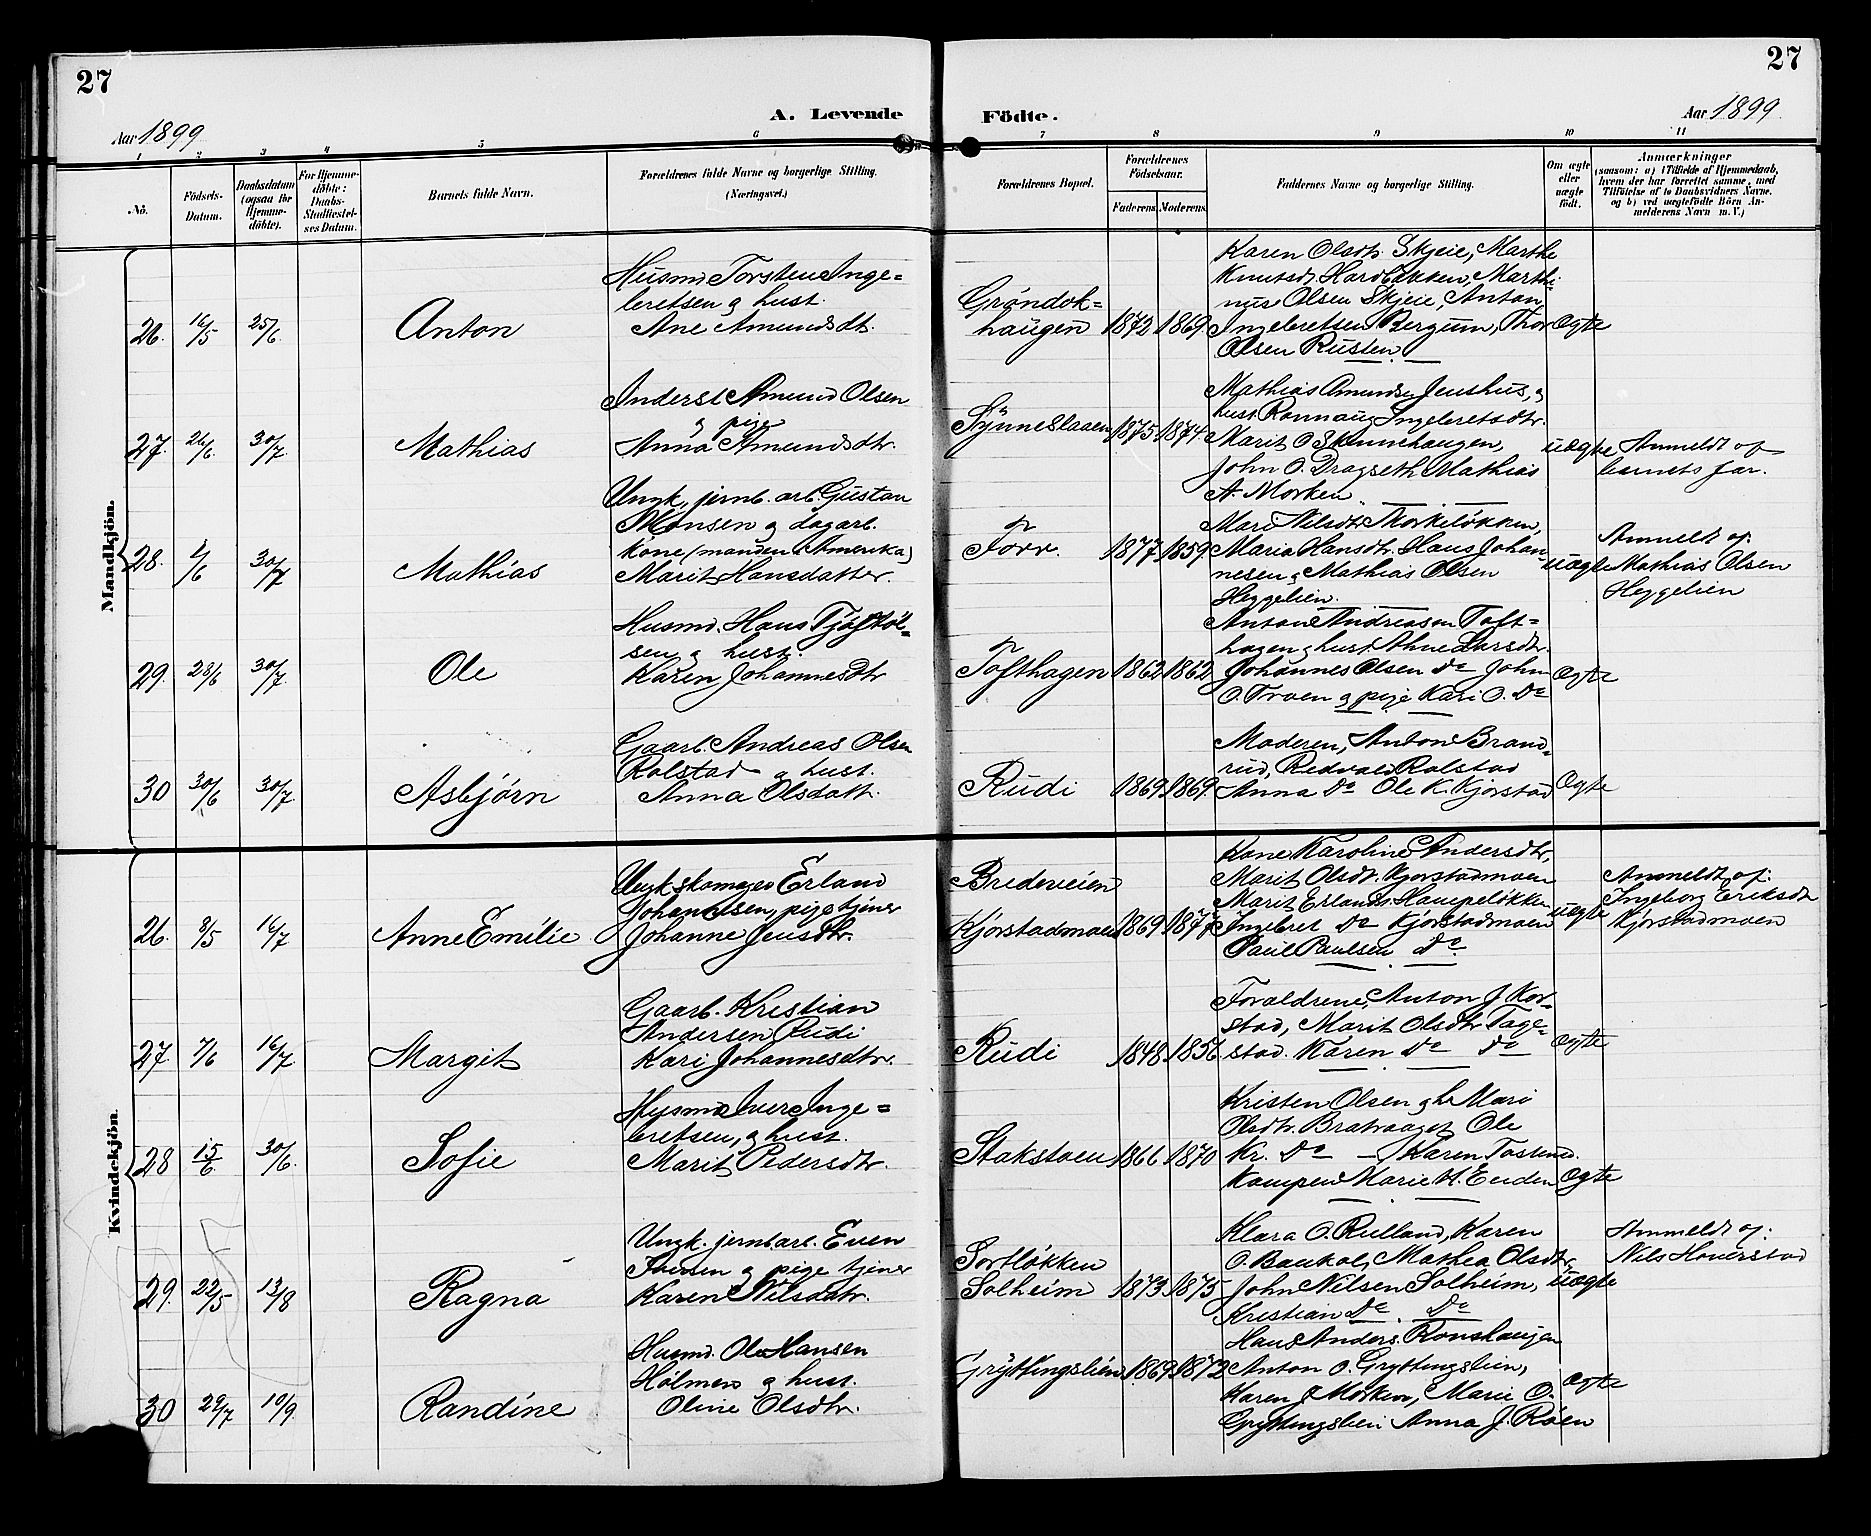 27
27
A. Levende
Födte.
Aar 1899
Aar 1899.
1
2
3
4
5
6
7
8
9
10
11
No.
Födsels-
Datum.
Daabsdatum
(ogsaa for
Hjemme-
döbte).
For Hjemme-
döbte:
Daabs-
Stadfæstel-
ses Datum.
Barnets fulde Navn.
Forældrenes fulde Navne og borgerlige Stilling.
(Næringsvei.)
Forældrenes Bopæl.
Forældrenes
Födselsaar.
Faderens.
Moderens.
Faddernes Navne og borgerlige Stilling.
Om ægte
eller
uægte
födt.
Anmærkninger
(saasom: a) i Tilfælde af Hjemmedaab,
hvem der har forrettet samme, med
Tilföielse af to Daabsvidners Navne,
og b) ved uægtefödte Börn An-
melderens Navn m. V.)
Mandkjön.
26.
16/5
25/6.
Anton
Husmd Torsten Inge=
bretsen & hust.
Ane Amundsdt.
Gröndok=
haugen
1872
1869.
Karen Olsdtr. Skjeie, Marthe
Knutsd. Hardbakken, Marthi-
nus Olsen Skjeie, Anton
Ingebretsen Bergum, Thor
Olsen Rusten.
Ægte
27.
26/6.
30/7.
Mathias
Inderst Amund Olsen
& pige
Anna Amundsdtr.
Synneslaaen
1875
1874.
Mathias Amundsen Jenshus, &
hust. Rønnaug Ingebretsdtr.
Marit O. Skunnehaugen,
John O. Dragseth Mathias
A. Morken.
uægte
Anmeldt af
barnets far.
28.
1/6
30/7
Mathias
Ungk. jernb. arb. Gustav
Monsen & dagarb.
Kone (manden i Amerika)
Marit Hansdatter.
Forr.
1877
1859.
Mari Nilsdtr. Storkeløkken,
Maria Hansdtr. Hans Johan-
nesen & Mathias Olsen
Heggelien.
uægte
Anmeldt af:
Mathias Olsen
Heggelien
29.
28/6
30/7.
Ole
Husmd. Hans Tjøstöl=
sen & hust.
Karen Johannesdtr
Tofthagen
1862
1862
Anton Andreasen Toft=
hagen & hust Ahne Larsdtr.
Johannes Olsen Do John
O. Troen & pige Kari O. Do
Ægte
30
30/6
30/7.
Asbjörn
Gaarb. Andreas Olsen
Rolstad & hust.
Anna Olsdatt.
Rudi
1869
1869.
Moderen, Anton Brand=
rud, Redvald Rolstad
Anna Do Ole K. Kjørstad
Ægte
Kvindekjön.
26.
8/5
16/7
Anne Emilie
Ungk. skomager Erland
Johannesen, pige tjener
Johanne Jensdtr.
Bredeveien
Kjörstadmoen
1869
1877
Kone Karoline Andersdtr,
Marit Olsdtr. Kjorstadmoen
Marit Erlands. Hampeløkken
Ingebret Do Kjörstadmoen
Paul Paulsen Do.
uægte
Anmeldt af:
Ingeborg Eriksdt
Kjörstadmoen
27.
7/6
16/7
Margit
Gaarb. Kristian
Andersen Rudi
Kari Johannesdtr.
Rudi
1848
1856
Forældrene, Anton J. Kor-
stad, Marit Olsdtr. Tage-
stad. Karen Do Do
Ægte
28
15/6
30/6.
Sofie
Husmd Iver Inge=
bretsen, & hust.
Marit Pedersdtr.
Stokstoen
1866
1870
Kristen Olsen & h. Mari
Olsdtr. Bratvaaget Ole
Kr. Do — Karen Tosten d.
Kampen Marie H. Enden
Ægte
29.
22/5
13/8
Ragna
Ungk. jernb. arb. Even
Iversen & pige tjener
Karen Nilsdtr.
Sortløkken
Solheim
1873
1875
Klara O. Rulland, Karen
O. Baukol, Mathea Olsdtr,
John Nilsen Solheim,
Kristian Do. Do
uægte
Anmeldt af:
Nils Hoverstad
30
29/7
10/9.
Randine
Husmd. Ole Hansen
Holmen & hust.
Oline Olsdtr.
Gryttingslien
1869.
1872
Hans Anders. Rønshaugen
Anton O. Gryttingslien,
Karen J. Morken, Marie O.
Gryttingslien Anna J. Røen
Ægte